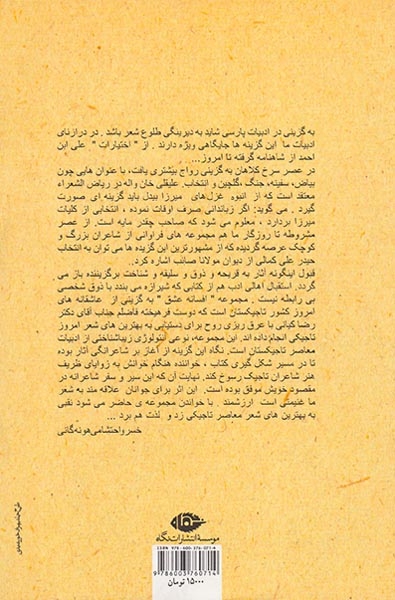 به گزینی در ادبیات پارسی شاید به دیرینگی طلوع شعر باشد . در درازنای
ادبیات ما این گزینه ها جایگاهی ویژه دارند . از " اختیارات " علی ابن
احمد از شاهنامه گرفته تا امروز...
در عصر سرخ کلاهان به گزینی رواج بیشتری یافت، با عنوان هایی چون
بیاض، سفینه، جنگ، گلچین و انتخاب. علیقلی خان واله در ریاض الشعراء
معتقد است که از انبوه غزل‌های میرزا بیدل باید گزینه ای صورت
گیرد . می گوید: اگر زباندانی صرف اوقات نموده ، انتخابی از کلیات
میرزا بردارد ، معلوم می شود که صاحب چقدر مایه است. از عصر
مشروطه تا روزگار ما هم مجموعه های فراوانی از شاعران بزرگ و
کوچک عرصه گردیده که از مشهورترین این گزیده ها می توان به انتخاب
حیدر علی کمالی از دیوان مولانا صائب اشاره کرد.
قبول اینگونه آثار به قریحه و ذوق و سلیقه و شناخت برگزیننده باز می
گردد. استقبال اهالی ادب هم از کتابی که شیرازه می بندد با ذوق شخصی
بی رابطه نیست . مجموعه " افسانه عشق " به گزینی از عاشقانه های
امروز کشور تاجیکستان است که دوست فرهیخته فاضلم جناب آقای دکتر
رضا کیانی با عرق ریزی روح برای دستیابی به بهترین های شعر امروز
تاجیکی انجام داده اند. این مجموعه، نوعی آنتولوژی زیباشناختی از ادبیات
معاصر تاجیکستان است. نگاه این گزینه از آغاز بر شاعرانگی آثار بوده
تا در مسیر شکل گیری کتاب ، خواننده هنگام خوانش به زوایای ظریف
هنر شاعران تاجیک رسوخ کند. نهایت آن که این سیر و سفر شاعرانه در
مقصود خویش موفق بوده است. این اثر برای جوانان علاقه مند به شعر
ما غنیمتی است ارزشمند . با خواندن مجموعه ی حاضر می شود نقبی
به بهترین های شعر معاصر تاجیکی زد و لذت هم برد ...
خسرو احتشامی هونه گانی
موسسۀ انتشارات نگاه
ISBN: 978-600-376-071-4
9786003760714
۱۵۰۰۰ تومان